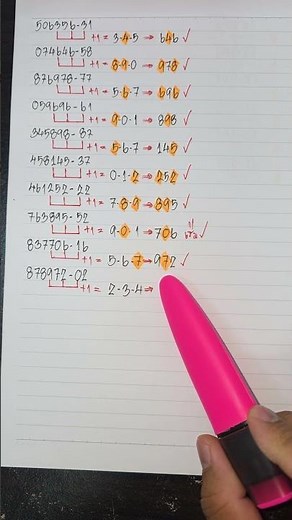 506356-31
+1 = 3-4-5 → 646 ✓
074646-58
+1 = 8-9-0 → 978 ✓
876978-77
+1 = 5-6-7 → 696 ✓
059696-61
+1 = 9-0-1 → 898 ✓
345898-87
+1 = 5-6-7 → 145 ✓
458145-37
+1 = 0-1-2 → 252 ✓
461252-22
+1 = 7-8-9 → 895 ✓
763895-52
+1 = 9-0-1 → 706 ✓
837706-16
+1 = 5-6-7 → 972 ✓
878972-02
+1 = 2-3-4 →